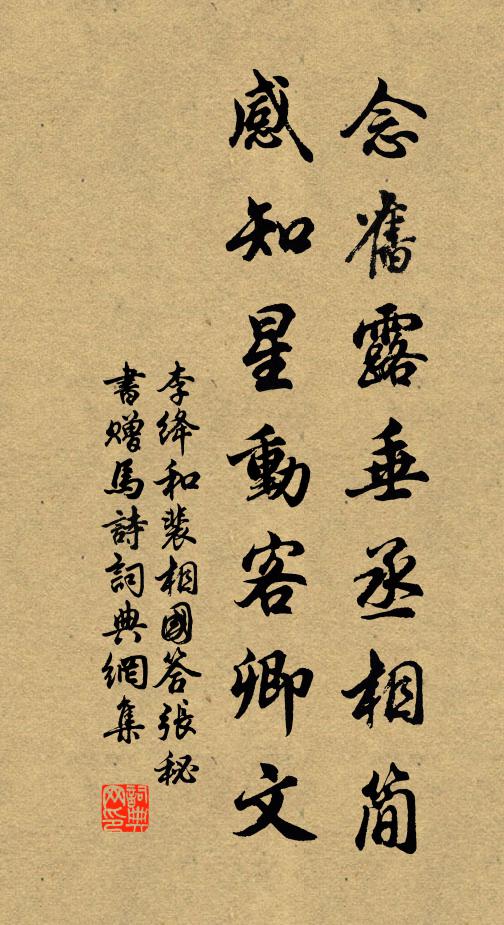 念舊露垂丞相簡
感知星動客卿文
李絳和裴相國答張秘
書贈馬詩詞典網集
詞典網印